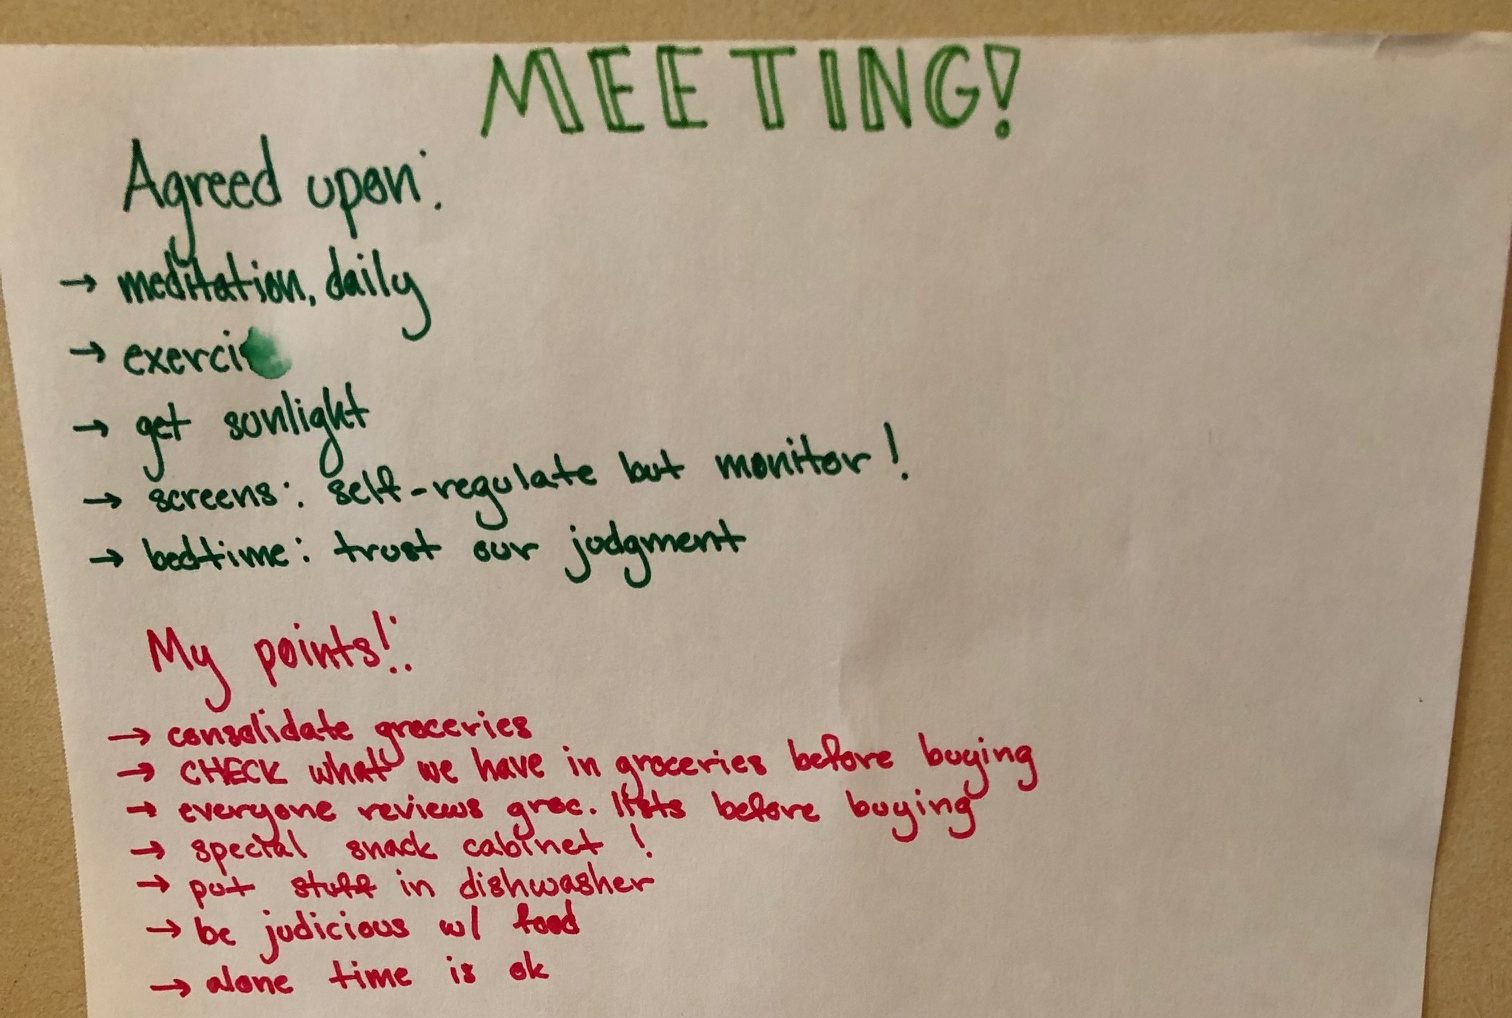 MEETING!
Agreed upon:
→ meditation, daily
→ exerci
→ get sunlight
→ screens: self-regulate but monitor!
→ bedtime: trust our judgment
My points!:
→ consolidate groceries
→ CHECK what we have in groceries before buying
→ everyone reviews groc. lists before buying
→ special snack cabinet !
→ put stuff in dishwasher
→ be judicious w/ food
→ alone time is ok